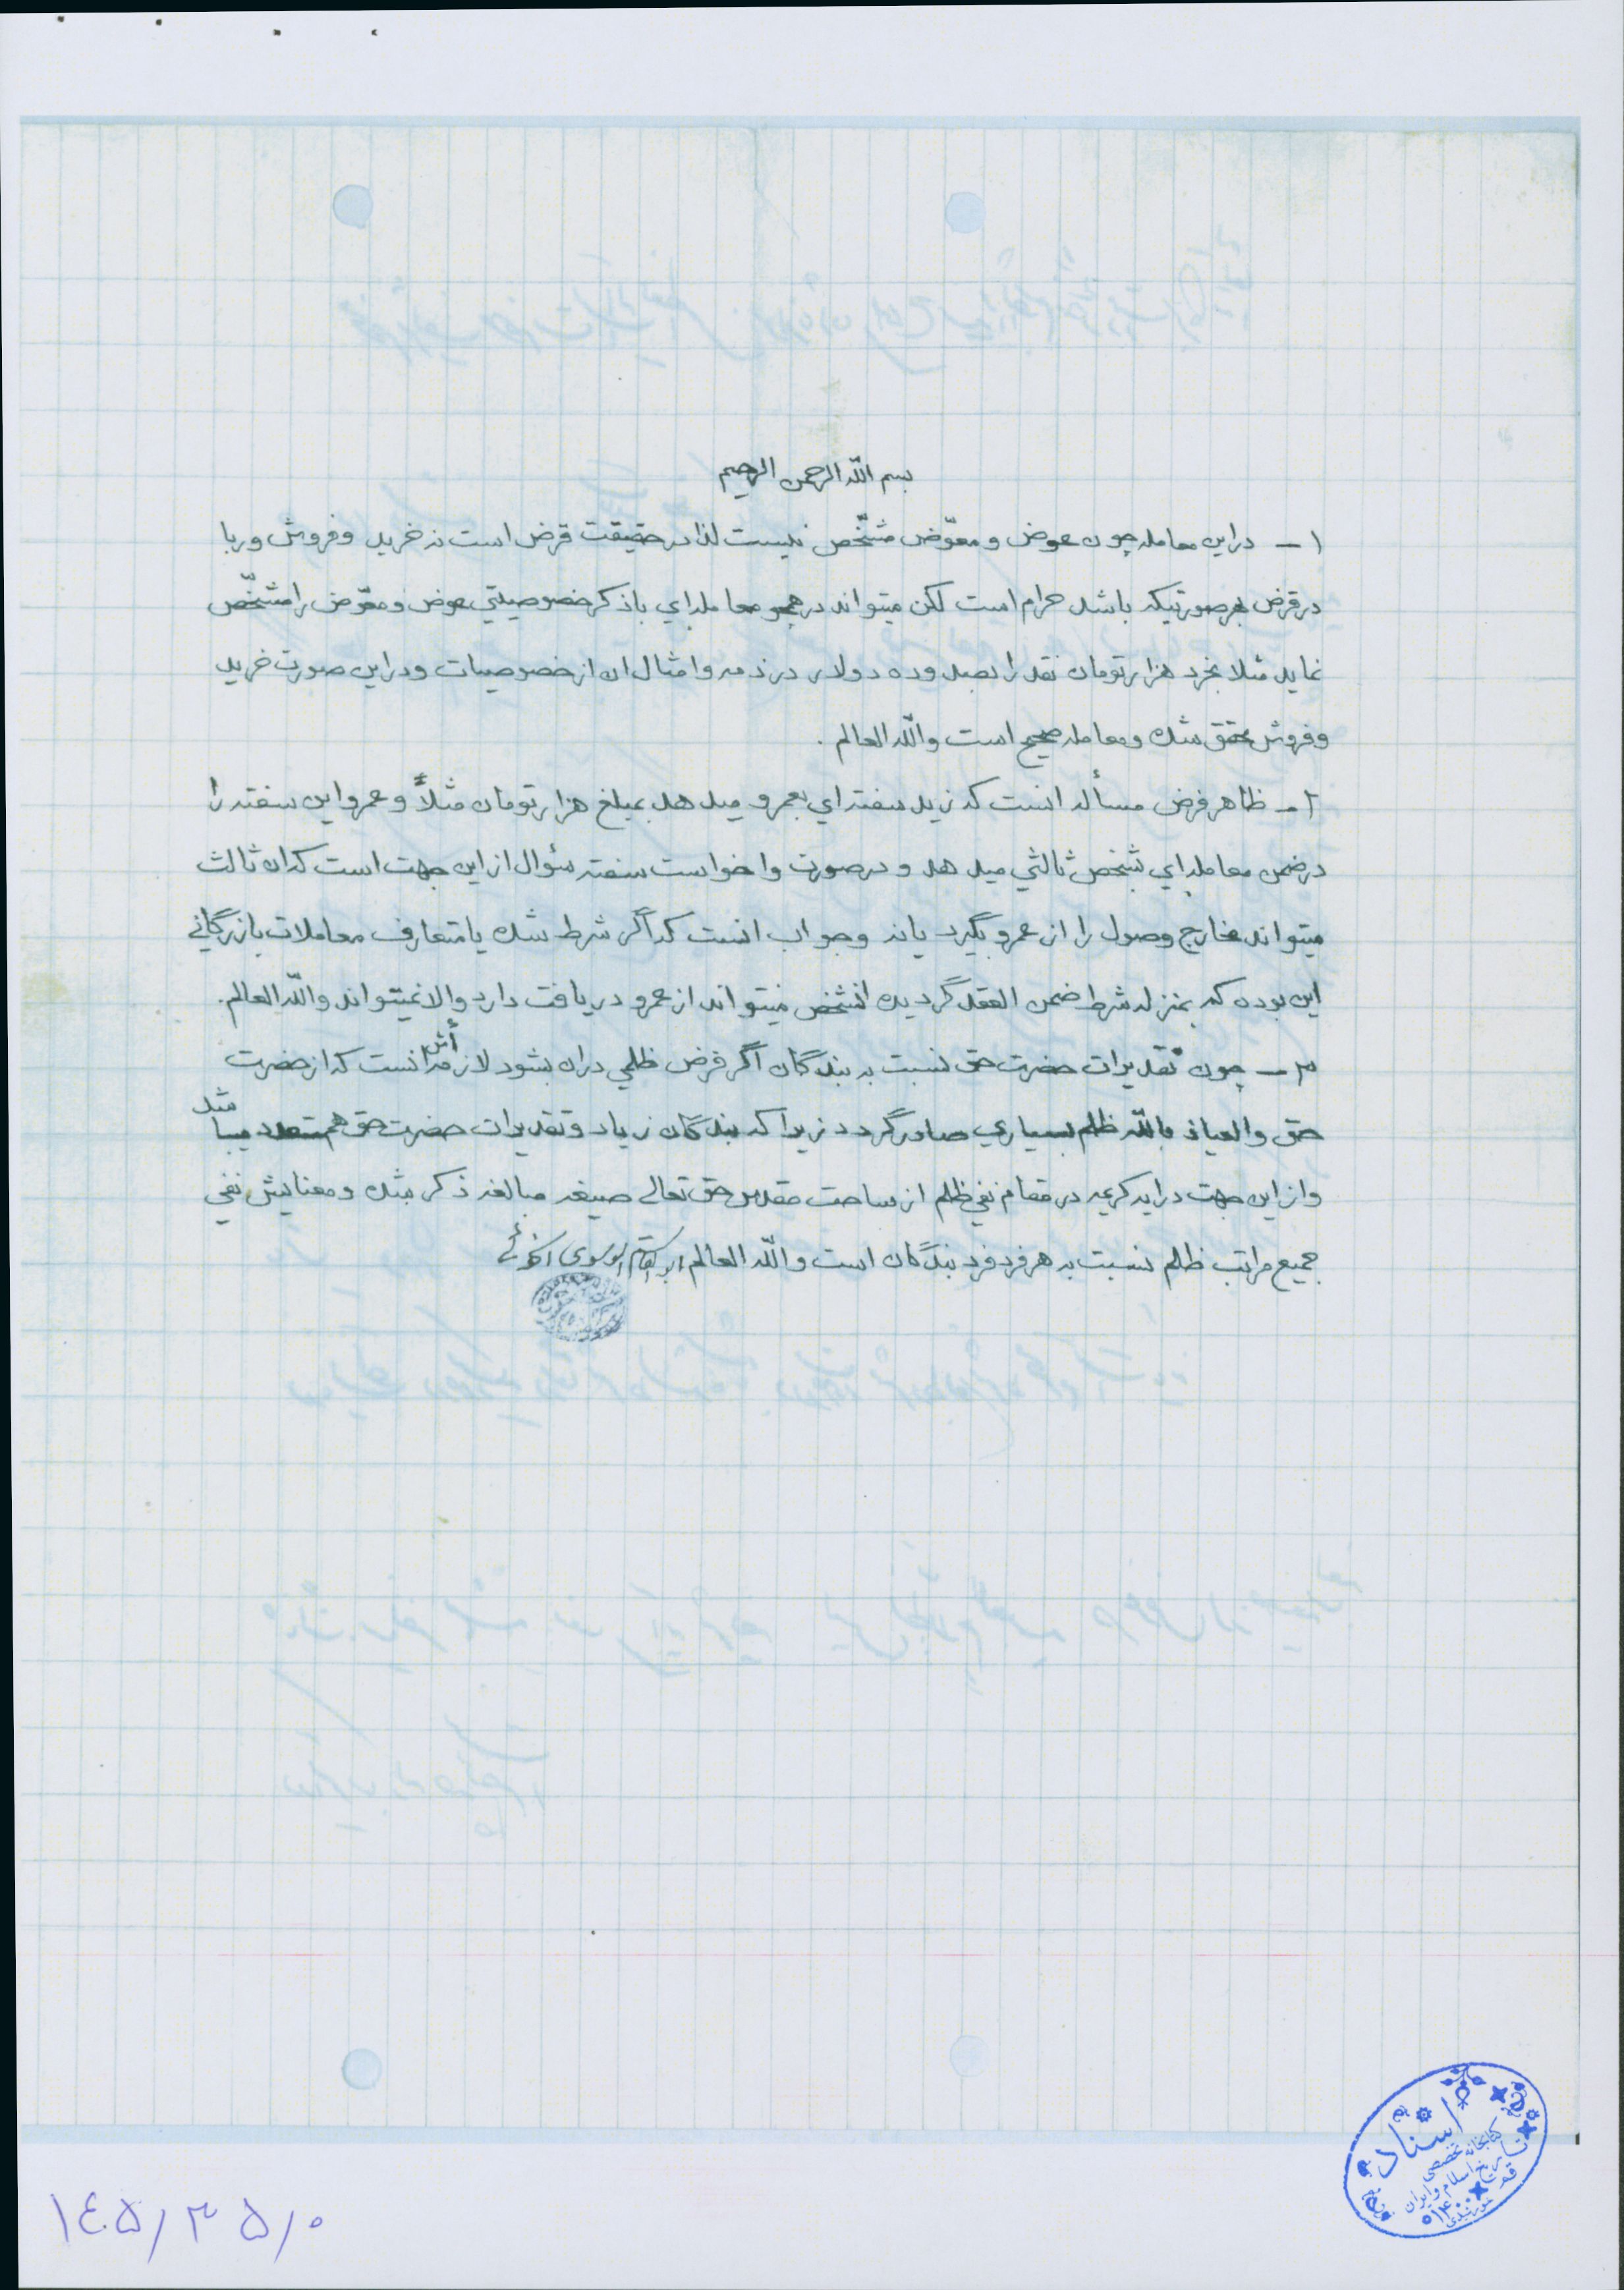 بسم اللّه الرحمن الرحيم
١ – دراين معامله چون عوض ومعوّض مشخّص نيست لذا درحقيقت قرض است نه خريد وفروش وربا
درقرض بهرصورتيكه باشد حرام است لكن ميتواند درهمچو معامله‌اي باذكر خصوصيتي عوض ومعوّض رامشخّص
نمايد مثلا بخرد هزارتومان نقد را بصد وده دولار درذمه وامثال ان ازخصوصيات ودراين صورت خريد
وفروش محقق شده ومعامله صحيح است واللّه العالم .
٢ – ظاهر فرض مسأله انست كه زيد سفته اي بعمرو ميدهد بمبلغ هزارتومان مثلاً وعمرو اين سفته را
درضمن معامله‌اي بشخص ثالثي ميدهد ودرصورت واخواست سفته سؤال ازاين جهت است كه ان ثالث
ميتواند مخارج وصول را ازعمرو بگيرد يانه وجواب انست كه اگر شرط شده يامتعارف معاملات بازرگاني
اين بوده كه بمنزله شرط ضمن العقد گرديده انشخص ميتواند ازعمرو دريافت دارد والا نميتواند واللّه العالم.
٣ – چون تقديرات حضرت حق نسبت به بندگان اگر فرض ظلمي دران بشود لازمه‌أش انست كه ازحضرت
حق والعياذ باللّه ظلم بسياري صادرگردد زيرا كه بندگان زياد وتقديرات حضرت حق هم متعدد ميباشد
وازاين جهت درايه كريمه درمقام نفي ظلم ازساحت مقدس حق تعالى صيغه مبالغه ذكر شده ومعنايش نفي
جميع مراتب ظلم نسبت به هر فرد فرد بندگان است واللّه العالم ابوالقاسم الموسوى الخوئي
اسناد
كتابخانه تخصصى
تاريخ اسلام وايران
قم
١٤٥/٣٥/٠